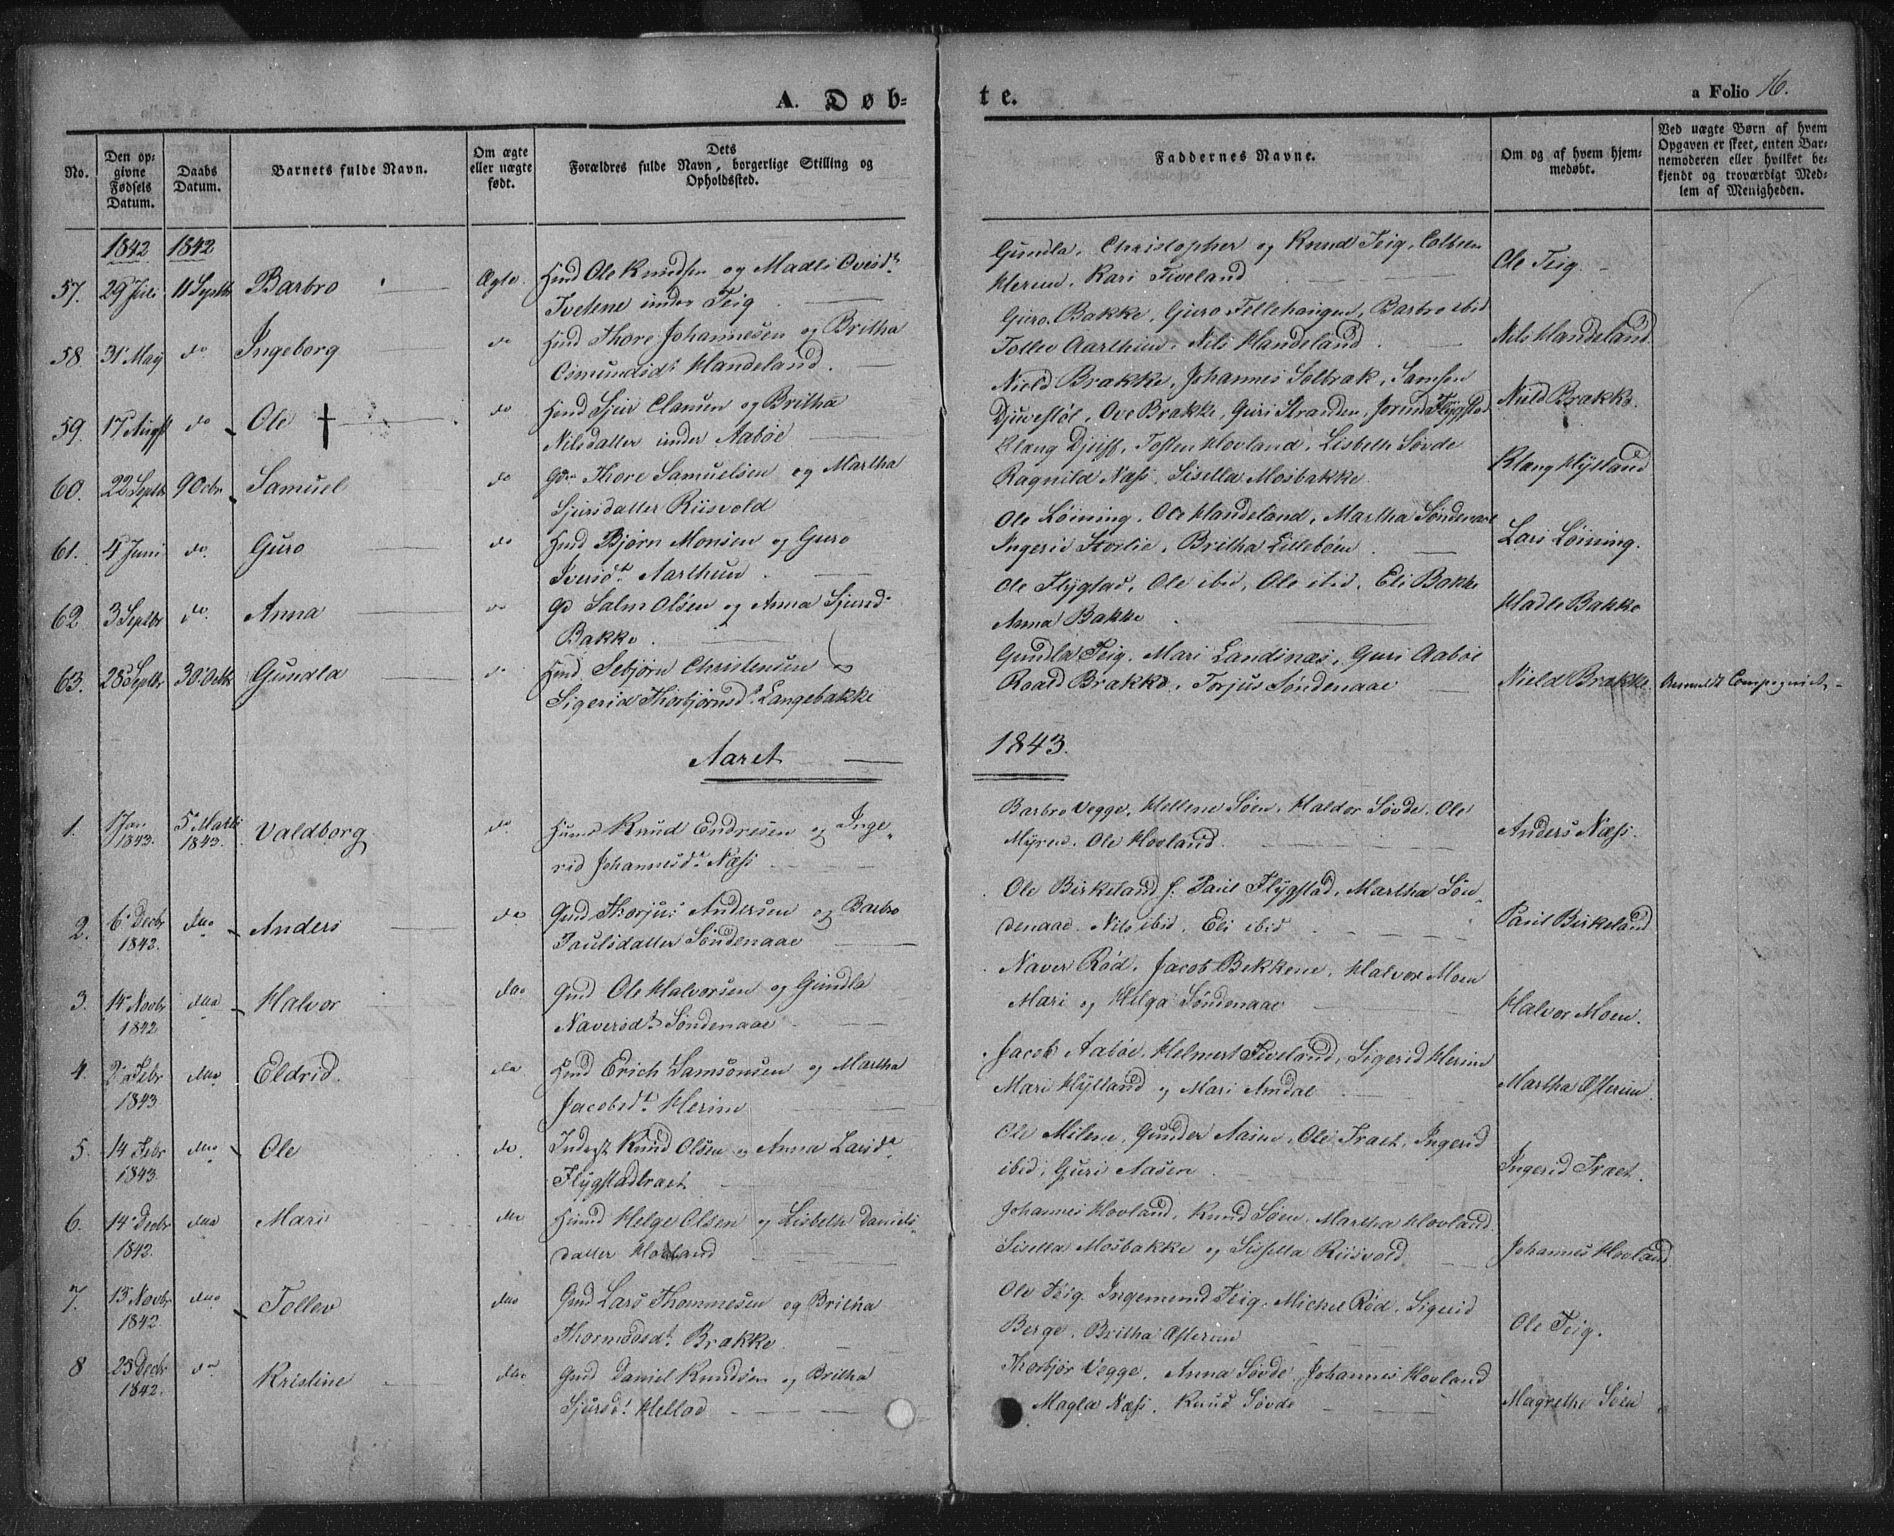 A. Døb=
te.
a Folio 16.
No.
Den op=
givne
Fødsels
Datum.
Daabs
Datum.
Barnets fulde Navn.
Om ægte
eller uægte
født.
Dets
Forældres fulde Navn, borgerlige Stilling og
Opholdssted.
Faddernes Navne.
Om og af hvem hjem=
medøbt.
Ved uægte Børn af hvem
Opgaven er skeet, enten Bar=
nemoderen eller hvilket be=
kjendt og troværdigt Med=
lem af Menigheden.
1842 1842
57. 29 Juli 11 Septbr Barbro Ægte. Hmd Ole Knudsen og Madli Oved.
Tvetene under Teig
Gundla, Christopher og Knud Teig,
Herem, Kari Tiveland
Ole Teig
58. 31 May do Ingeborg do Hmd Thore Johannesen og Britha
Osmundsd. Handeland.
Guro Bakke, Guro Tellehaugen, Barbro ibid
Tollev Aarthun, Nils Handeland
Nils Handeland
59. 17 Augst do Ole † do Hmd Sjur Clausen og Britha
Nilsdatter under Aabøe
Nield Brakke, Johannes Solbrak, Samson
Djuvesløt, Ove Brakke, Guri Stranden, Flygstad
Nield Brakke.
60. 22 Septbr 9 Octbr Samuel do Gdm Thore Samuelsen og Martha
Sjursdatter Riisvold
Klang Djuff, Tosten Hovland, Lisbeth Søvde
Ragnild Næss, Sisella Mosbakke.
Klang Hylland
61. 4 Juni do Guro do Hmd Bjørn Monsen og Guro
Iversd. Aarthun.
Ole Løining, Ole Handeland, Martha Søndenaae
Ingerid Storlie, Britha Lillebøen
Lars Løining.
62. 3 Septbr do. Anna do Gd Salm. Olsen og Anna Sjursd.
Bakke.
Ole Flygstad, Ole ibid, Ole ibid, Eli Bakke
Anna Bakke
Hadle Bakke
63. 28 Septbr 30 Octbr Gundla do Hmd. Sebjørn Christensen og
Sigerid Thorbjørnsd. Langebakke
Gundla Teig, Mari Landinæs, Guri Aabøe
Roald Brakke, Torjus Søndenaae
Nield Brakke. Compagniet
Aaret 1843.
1. 1 Jan 1843. 5 Marts 1843. Valdborg do Huusm Knud Endresen og Inge=
rid Johannesd. Næss
Barbro Vegge, Hellene Søen, Haldor Søvde, Ole
Myren, Ole Hovland.
Anders Næss.
2. 6 Decbr 1842. dao Anders do Gmd Thorjus Andersen og Barbro
Paulsdatter Søndenaae
Ole Birkeland, Paul Flygstad, Martha Søn=
denaae, Nils ibid, Eli ibid
Paul Birkeland
3. 14 Novbr 1842 daa Halvor dao Gmd Ole Halvorsen og Gundla
Naversd. Søndenaae
Naver Rød, Jacob Bekkene, Halvor Moen
Mari og Helga Søndenaae
Halvor Moen.
4. 2 Febr 1843. dao Eldrid. do Hmd Erich Samsonsen og Martha
Jacobsd. Herim
Jacob Aabøe, Helmert Tiveland, Sigerid Herim
Mari Hylland og Mari Amdal
Martha Østerim.
5. 14 Febr 1843 dao Ole do. Inderst Knud Olsen og Anna Larsd.
Flygstadtraet
Ole Milene, Gunder Aasen, Ole Traet, Ingerid
ibid, Guri Aasen
Ingerid Traet.
6. 14 Decbr 1842. daa Mari dao Huusmd Helge Olsen og Lisbeth Daniels=
datter Hovland
Johannes Hovland, Knud Søen, Martha Hovland
Sisella Mosbakke og Sissella Riisvold
Johannes Hovland
7. 13 Novbr 1842. dao Tollev dao Gmd Lars Thommesen og Britha
Thormodsd. Brakke
Ole Teig, Ingemund Teig, Michel Rød, Sigerid
Berge, Britha Østerim
Ole Teig.
8 25 Decbr 1842. do Kristine dao Gmd Daniel Knudsen og Britha
Sjursd. Hellad
Thorbjør Vegge, Anna Søvde, Johannes Hovland
Magla Næss, Knud Søvde
Magrethe Søen